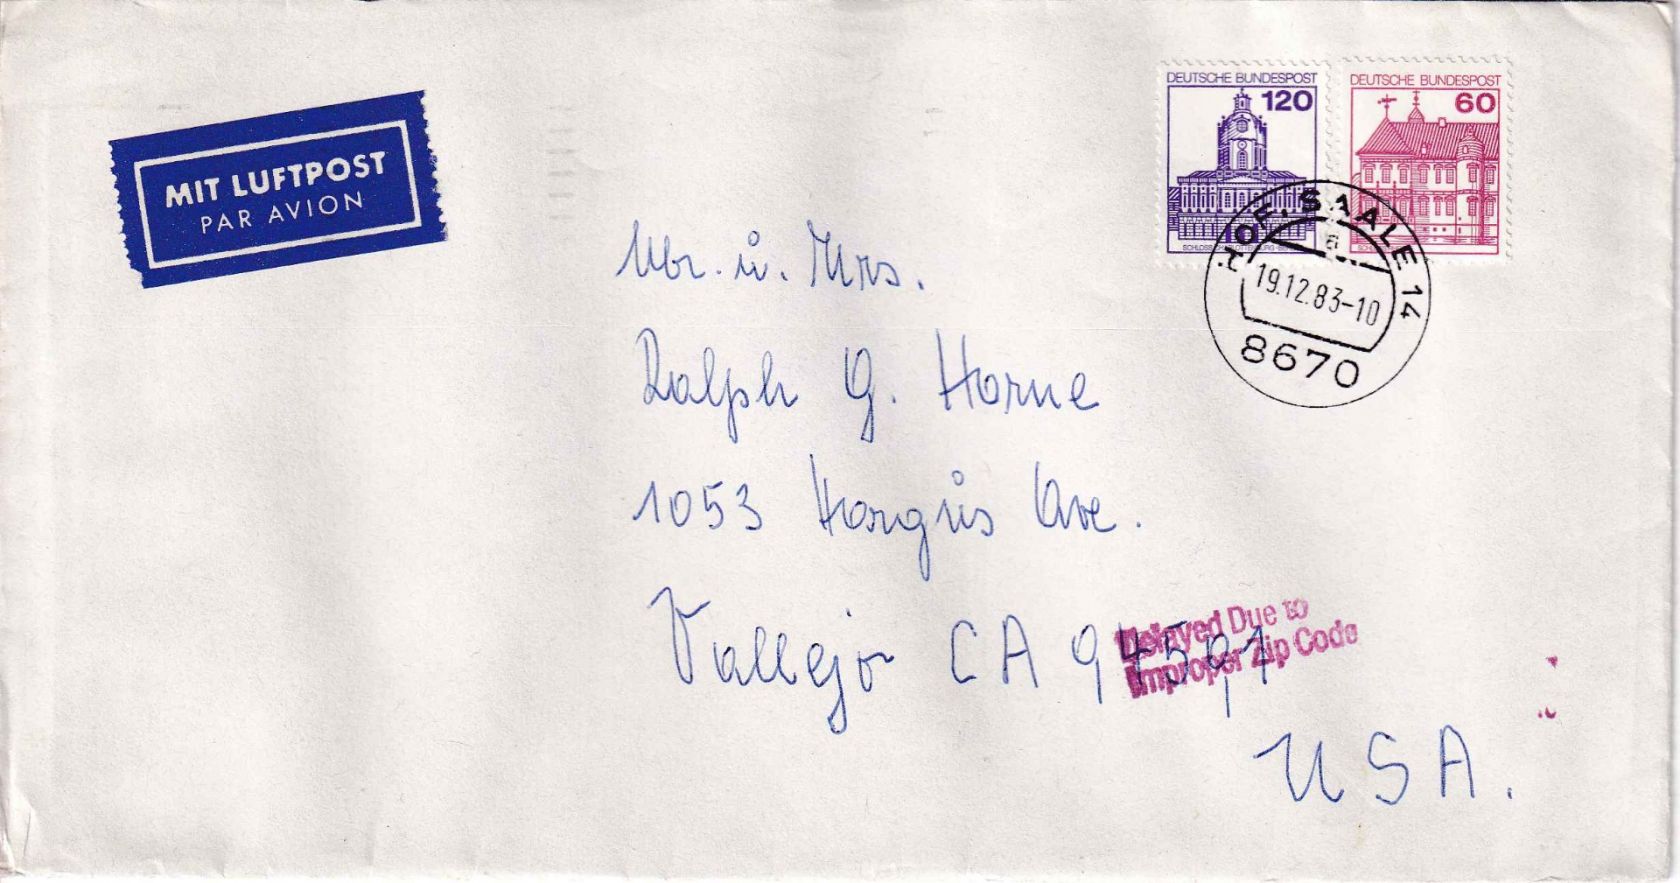 MIT LUFTPOST
PAR AVION
DEUTSCHE BUNDESPOST
120
DEUTSCHE BUNDESPOST
60
HOF, SAALE 14
a
19.12.83-10
8670
Mr. ü. Mrs.
Ralph G. Horne
1053 Hargüs Ave.
Vallejo CA 94591
USA.
Delayed Due to
Improper Zip Code